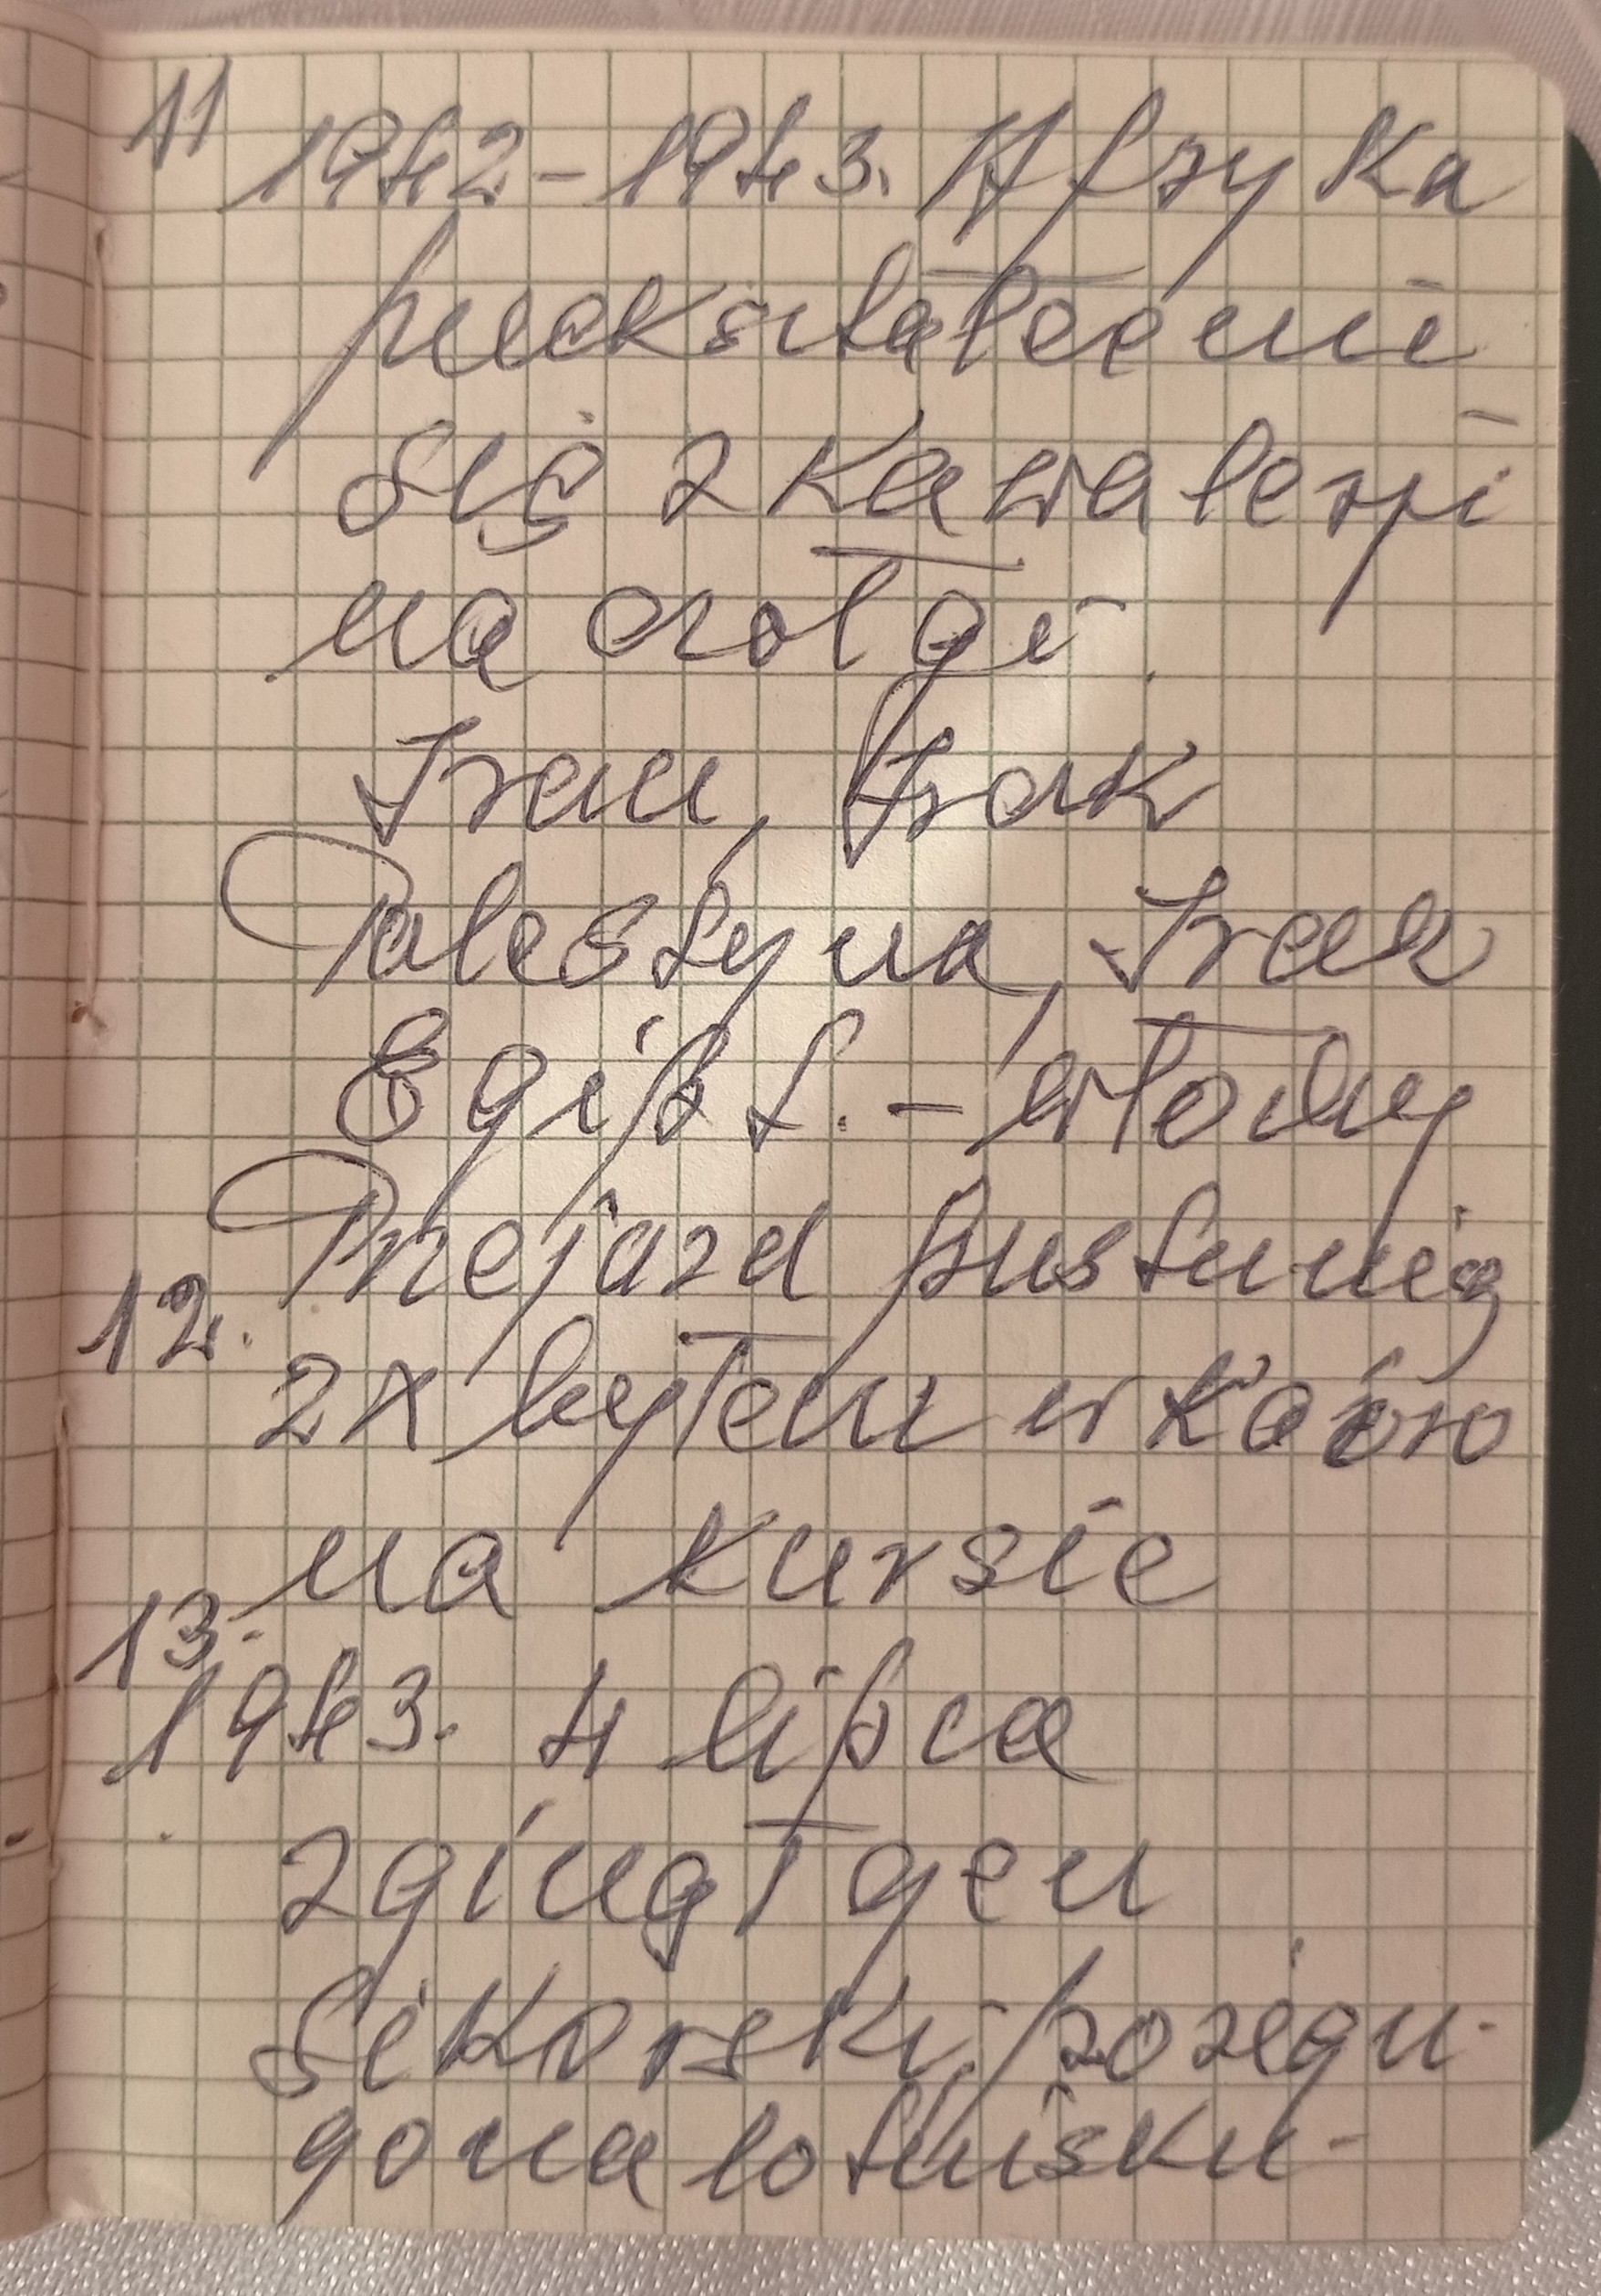 11 1942-1943. Afryka
przekształcenie
się z kawalerji
na czołgi.
Iran, Irak
Palestyna, Irak
Egipt. - wtedy
Przejazd pustynią
12.
2x byłem w Kairo
na kursie
13.
1943. 4 lipca
zginął gen
Sikorski, pożegn.
go na lotnisku -